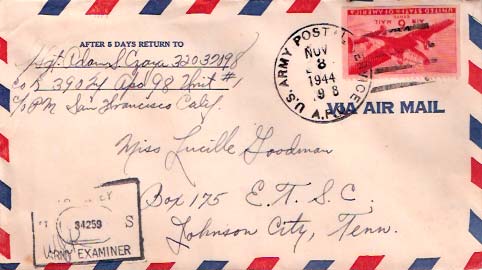 AFTER 5 DAYS RETURN TO
Sgt. Adam S. 32032198
Co. 3902 A.P.O. 98 Unit #1
c/o P.M. San Francisco Calif.
UNITED STATES OF AMERICA
6 CENTS
AIR MAIL
U.S. ARMY POSTAL SERVICE
NOV
8
1944
98
A.P.O.
VIA AIR MAIL
Miss Lucille Goodman
Box 175 E. T. S. C.
Johnson City, Tenn.
34259 S
ARMY EXAMINER